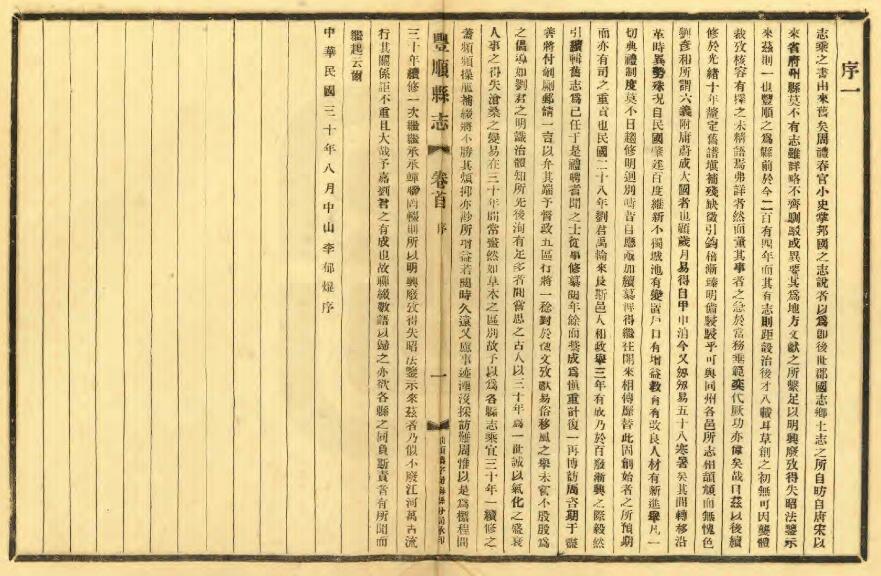 序一
志乘之書由來舊矣周禮春官小史掌邦國之志說者以為即後世郡國志鄉土志之所自昉自唐宋以
來省府州縣莫不有志雖詳略不齊馴駁或異要其為地方文獻之所繫足以明興廢攷得失昭法鑒示
來茲則一也豐順之為縣前於今二百有四年而其有志則距設治後才八載耳草創之初無可因襲體
裁攷核容有擇之未精語焉弗詳者然而董其事者之急於當務垂範奕代厥功亦偉矣哉日茲以後續
修於光緒十年釐定舊譜塡補殘缺徵引鈎稽漸臻明備駸駸乎可與同州各邑所志相頡頏而無愧色
劉彥和所謂六義附庸蔚成大國者也顧歲月易得自甲申洎今又匆匆易五十八寒暑矣其間轉移沿
革時異勢殊況自民國肇建百度維新不獨城池有變置戶口有增益教育有改良人材有新進舉凡一
切典禮制度莫不日趨修明迥別疇昔自應亟加續纂俾得繼往開來相傳靡替此固創始者之所預期
而亦有司之重責也民國二十八年劉君禹輪來長斯邑人和政舉三年有成乃於百廢漸興之際毅然
引續輯舊志為己任于是禮聘耆聞之士從事修纂閱年餘而藁成為愼重計復一再博訪周咨期于盡
善將付剞劂郵請一言以弁其端予督政五區行將一稔對於徵文攷獻易俗移風之舉未嘗不殷殷爲
之倡導如劉君之明識治體知所先後洵有足多者間嘗思之古人以三十年爲一世誠以氣化之盛衰
人事之得失滄桑之變易在三十年間當釐然如草木之區別故予以爲各縣志乘宜三十年一續修之
蓋頻頻操觚補綴將不勝其煩抑亦尠所增益若閱時久遠又慮事迹湮沒採訪難周惟以是爲標程間
豐順縣志 卷首 序 一
三十年續修一次繼繼承承蟬聯罔輟則所以明興廢攷得失昭法鑒示來茲者乃似不廢江河萬古流
行其關係詎不重且大哉予嘉劉君之有成也故聊綴數語以歸之亦欲各縣之同負斯責者有所聞而
繼起云爾
中華民國三十年八月中山李郁焜序